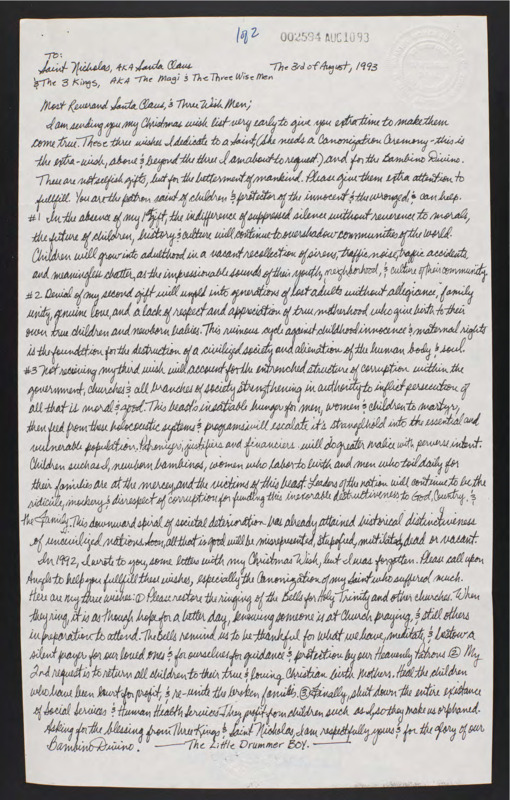 1 of 2
002594 AUG1093
To:
Saint Nicholas, AKA Santa Claus
The 3rd of August, 1993
& The 3 Kings, AKA The Magi & The Three Wise Men
Most Reverend Santa Claus, & Three Wish Men;
I am sending you my Christmas wish list very early to give you extra time to make them
come true. These three wishes I dedicate to a Saint (she needs a Canonization Ceremony - this is
the extra-wish, above & beyond the three I am about to request) and for the Bambino Divino.
These are not selfish gifts, but for the betterment of mankind. Please give them extra attention to
fullfill. You are the patron saint of children & protector of the innocent & the wronged, & can help.
#1 In the absence of my gift, the indifference of suppressed silence without reverence to morals,
the future of children, history & culture will continue to overshadow communities of the world.
Children will grow into adulthood in a vacant recollection of sirens, traffic noise, traffic accidents
and meaningless chatter, as the impressionable sounds of their youth, neighborhood, & culture of their community.
#2 Denial of my second gift will unfold into generations of lost adults without allegiance, family
unity, genuine love, and a lack of respect and appreciation of true motherhood who give birth to their
own true children and newborn babies. This ruinous cycle against childhood innocence & maternal rights
is the foundation for the destruction of a civilized society and alienation of the human body & soul.
#3 Not receiving my third wish will account for the entrenched structure of corruption within the
government, churches & all branches of society strengthening in authority to inflict persecution of
all that is moral & good. This beast's insatiable hunger for men, women & children to martyr,
then feed from these holocoustic systems & programs will escalate it's stranglehold into the essential and
vulnerable population. Patronizers, justifiers and financiers will do greater malice with perverse intent.
Children such as I, newborn bambinos, women who labor to birth and men who toil daily for
their families are at the mercy, and the victims of this beast. Leaders of the nation will continue to be the
ridicule, mockery & disrespect of corruption for funding this inexorable destructiveness to God, Country, &
the Family. This downward spiral of societal deterioration has already attained historical distinctiveness
of uncivilized nations. Soon, all that is good will be misrepresented, stupefied, mutilated, dead or vacant.
In 1992, I wrote to you, some letter with my Christmas Wish, but I was forgotten. Please call upon
Angels to help you fullfill these wishes, especially the Canonization of my Saint who suffered much.
Here are my three wishes: ① Please restore the ringing of the Bells for Holy Trinity and other churches. When
they ring, it is as though hope for a better day, knowing someone is at Church praying, & still others
in preparation to attend. The Bells remind us to be thankful for what we have, meditate, & bestow a
silent prayer for our loved ones & for ourselves for guidance & protection by our Heavenly Patrons ② My
2nd request is to return all children to their true & loving Christian birth Mothers. Heal the children
who have been hurt for profit, & re-unite the broken families ③ Finally, shut down the entire existance
of Social Services & Human Health Services. They profit from children such as I, so they make us orphaned.
Asking for the blessing from Three Kings & Saint Nicholas, I am respectfully yours & for the glory of our
Bambino Divino. The Little Drummer Boy.